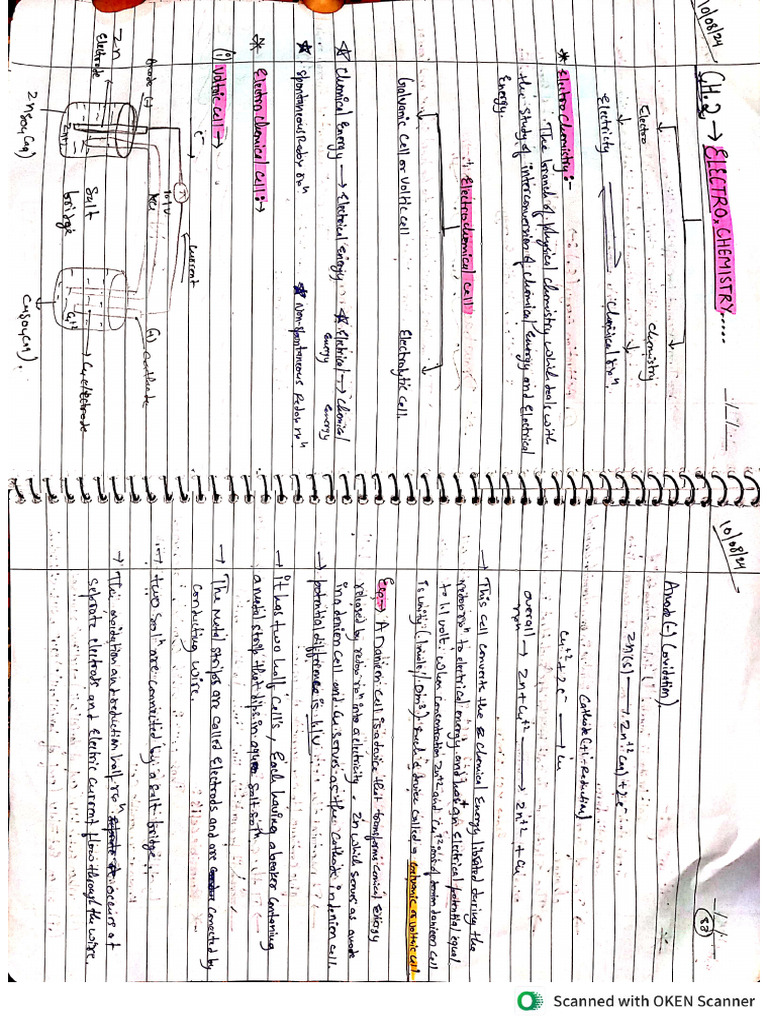 10/08/24
CH.2 → ELECTRO, CHEMISTRY.....
Electro
Chemistry
electricity
Chemical rxn
* Electrochemistry:-
The branch of physical chemistry which deals with
the study of interconversion of chemical energy and Electrical
Energy.
Electrochemical cell
Galvanic cell or Voltic cell
Electrolytic cell.
* Chemical Energy → Electrical energy
* Electrical → chemical
energy energy
* Spontaneous Redox rxn
* Non-spontaneous Redox rxn
* Electro chemical cell:→
(i) Voltaic cell →
e-
current
Anode (-)
Zn
Electrode
KCl
1.1V
(+) cathode
Salt
bridge
Cu electrode
ZnSO4(aq)
CuSO4(aq).
10/08/24
Anode(-) (oxidation)
Zn(s) → Zn+2(aq) + 2e-
Cathode(+) (Reduction)
Cu+2 + 2e- → Cu
overall → Zn + Cu+2 → Zn+2 + Cu
rxn
→ This cell converte the chemical Energy librated during the
redox rxn to electrical energy and has an electrical potential equal
to 1.1 volt. When concentration Zn+2 and Cu+2 danieen cell
is unity (1 mole/1 Dm3). Such a device called a galvanic or voltaic cell.
Exp→ A Danieen cell is a device that transforms Energy
released by redox rxn into electricity. Zn which serves as anode
in a denien cell and Cu serves as the cathode in denien cell.
→ potential difference is 1.1V
→ it has two half cells, Each having a beaker containing
a metal strip that dips in salt
→ The Metal strips are called Electrods and are conected by
conducting wire.
→ two are connected by a salt bridge.
→ This oxidation and reduction half rxn occurs at
Seprate electrod and Electric current flow through the wire.
Scanned with OKEN Scanner